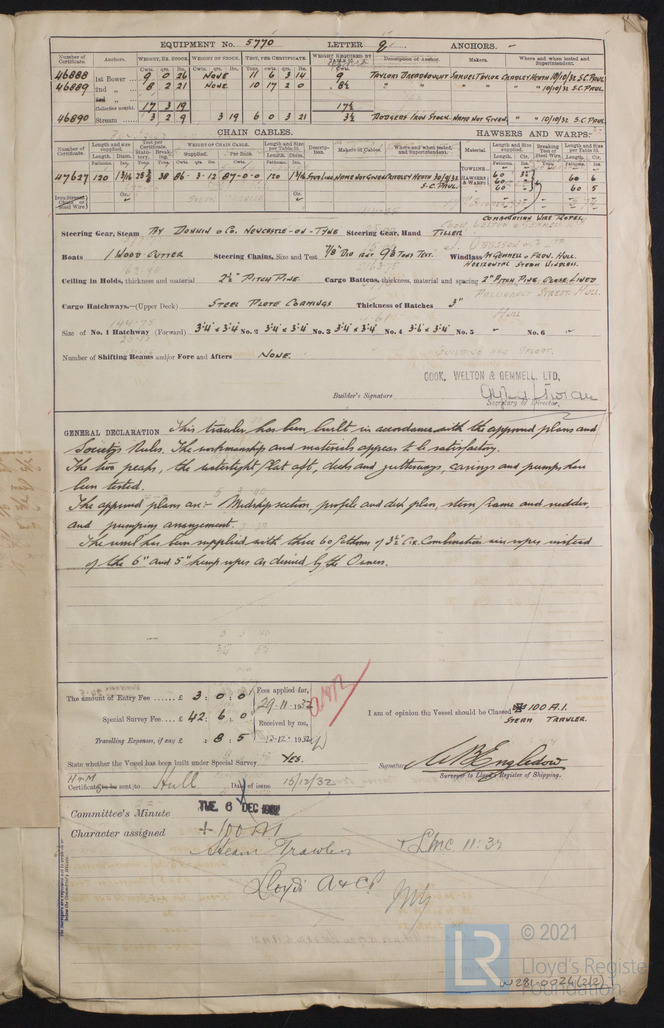 EQUIPMENT No. 5770 LETTER q ANCHORS.
Number of Certificate. Anchors. WEIGHT, EX. STOCK. WEIGHT OF STOCK. TEST, PER CERTIFICATE. WEIGHT REQUIRED BY Description of Anchor. Makers. Where and when tested and Superintendent.
Cwts. qrs. lbs. Cwts. qrs. lbs. Tons. cwts. qrs. lbs. Cwts.
46888 1st Bower 9 0 26 NONE 11 6 3 14 9 TAYLORS DREADNOUGHT SAMUEL TAYLOR CRADLEY HEATH 10/10/32 S.C. PAUL
46889 2nd „ 8 2 21 NONE 10 17 2 0 8½ " " " " " 10/10/32 S.C. PAUL.
3rd „
Collective weight. 17 3 19 17½
46890 Stream 3 2 9 3 19 6 0 3 21 3½ RODGERS IRON STOCK. NAME NOT GIVEN. " " 10/10/32 S.C. PAUL
CHAIN CABLES. HAWSERS AND WARPS.
Number of Certificate. Length and size supplied. Test per Certificate. WEIGHT OF CHAIN CABLE. Length and Size per Table 31. Description. Makers of Cables. Where and when tested, and Superintendent. Material. Length and size supplied. Breaking Test of Steel Wire. Length and Size per Table 31.
Fathoms. Diam. Statutory. Breaking. Supplied. Per Rule. Fathoms. Diam. Fathoms. Cir. Fathoms. Cir.
47627 120 1 3/16 38 86-3-12 87-0-0 120 1 3/16 NAME NOT GIVEN CRADLEY HEATH S.C. PAUL.
TOWLINE
HAWSERS & WARPS 60 3½ 60 6
60 " 60 5
60 "
Iron Stream Chain or Steel Wire
COMBINATION WIRE ROPES.
Steering Gear, Steam TAY DONKIN & CO. NEWCASTLE-ON-TYNE Steering Gear, Hand TILLER
Boats 1 WOOD CUTTER Steering Chains, Size and Test 7/8" DIA TONS TEST. Windlass HULL. HORIZONTAL STEAM WINDLASS.
Ceiling in Holds, thickness and material 2½" PITCH PINE. Cargo Battens, thickness, material and spacing 2" PITCH PINE. CLOSE LINED
Cargo Hatchways.—(Upper Deck) STEEL PLATE COAMINGS Thickness of Hatches 3"
Size of No. 1 Hatchway (Forward) 3'4" x 3'4" No. 2 3'4" x 3'4" No. 3 3'4" x 3'4" No. 4 3'6" x 3'4" No. 5 " No. 6 "
Number of Shifting Beams and/or Fore and Afters NONE.
COOK, WELTON & GEMMELL, LTD.
Builder's Signature
Secretary & Director.
GENERAL DECLARATION This trawler has been built in accordance with the approved plans and
Society's Rules. The workmanship and materials appear to be satisfactory.
The two peaks, the watertight flat aft, decks and gutterways, casings and pumps have
been tested.
The approved plans are:- Midship section, profile and deck plan, stern frame and rudder,
and pumping arrangement.
The vessel has been supplied with three 60 fathoms of 3½" Cir. Combination wire ropes instead
of the 6" and 5" hemp ropes as desired by the Owners.
The amount of Entry Fee £ 3 : 0 : 0 Fees applied for, 29.11.1932
Special Survey Fee £ 42 : 6 : 0 Received by me,
Travelling Expenses, if any £ : 8 : 5 12.12.1932
I am of opinion the Vessel should be Classed 100 A.1.
STEAM TRAWLER.
State whether the Vessel has been built under Special Survey YES.
Signature
Surveyor to Lloyd's Register of Shipping.
Certificate to be sent to Hull Date of issue 15/12/32
Committee's Minute TUE. 6 DEC 1932
Character assigned + 100 A1
Steam Trawler + LMC 11.32
Lloyds A & CP
© 2021
Lloyd's Register
Foundation
W281-0026(2/2)